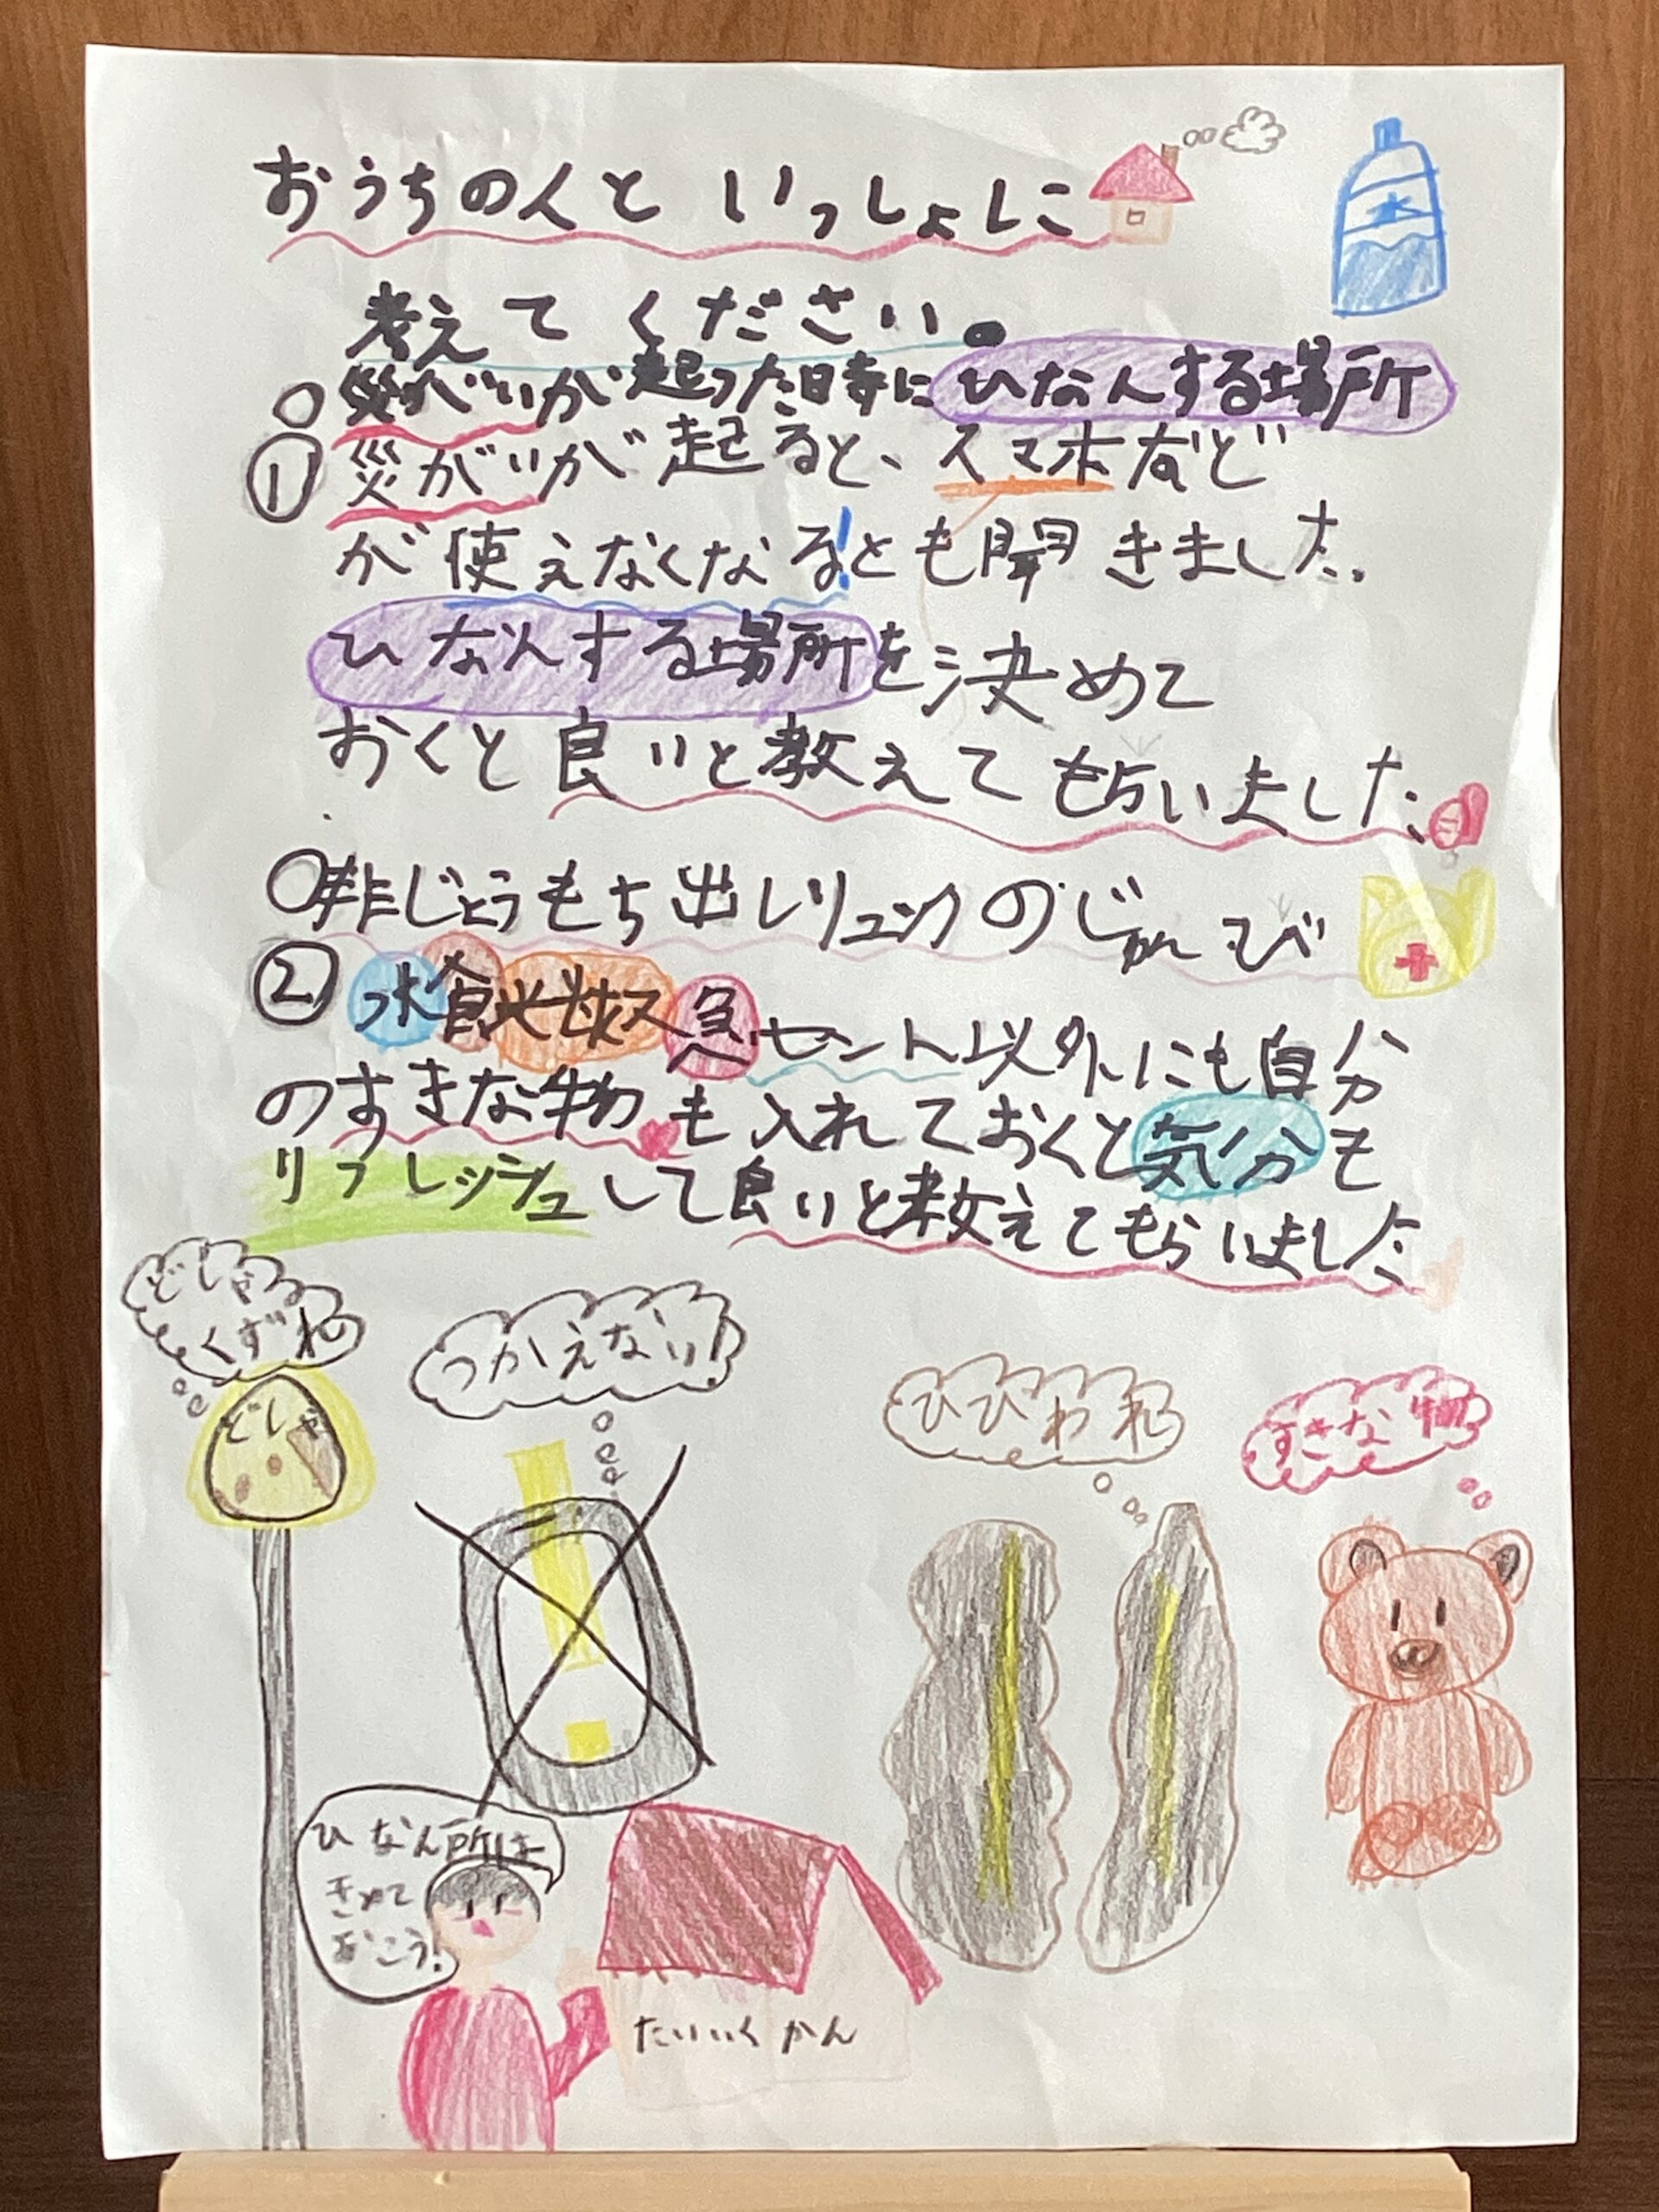 おうちの人といっしょに
水
考えてください。
○災がいが起った時にひなんする場所
① 災がいが起ると、スマホなど
が使えなくなる!とも聞きました。
ひなんする場所を決めて
おくと良いと教えてもらいました。
○非じょうもち出しリュックのじゅんび
② 水食光 急セット以外にも自分
のすきな物も入れておくと気分も
リフレッシュして良いと教えてもらいました
どしゃ
くずれ
どしゃ
つかえない!
ひびわれ
すきな物
ひなん所は
きめて
おこう!
たいいくかん